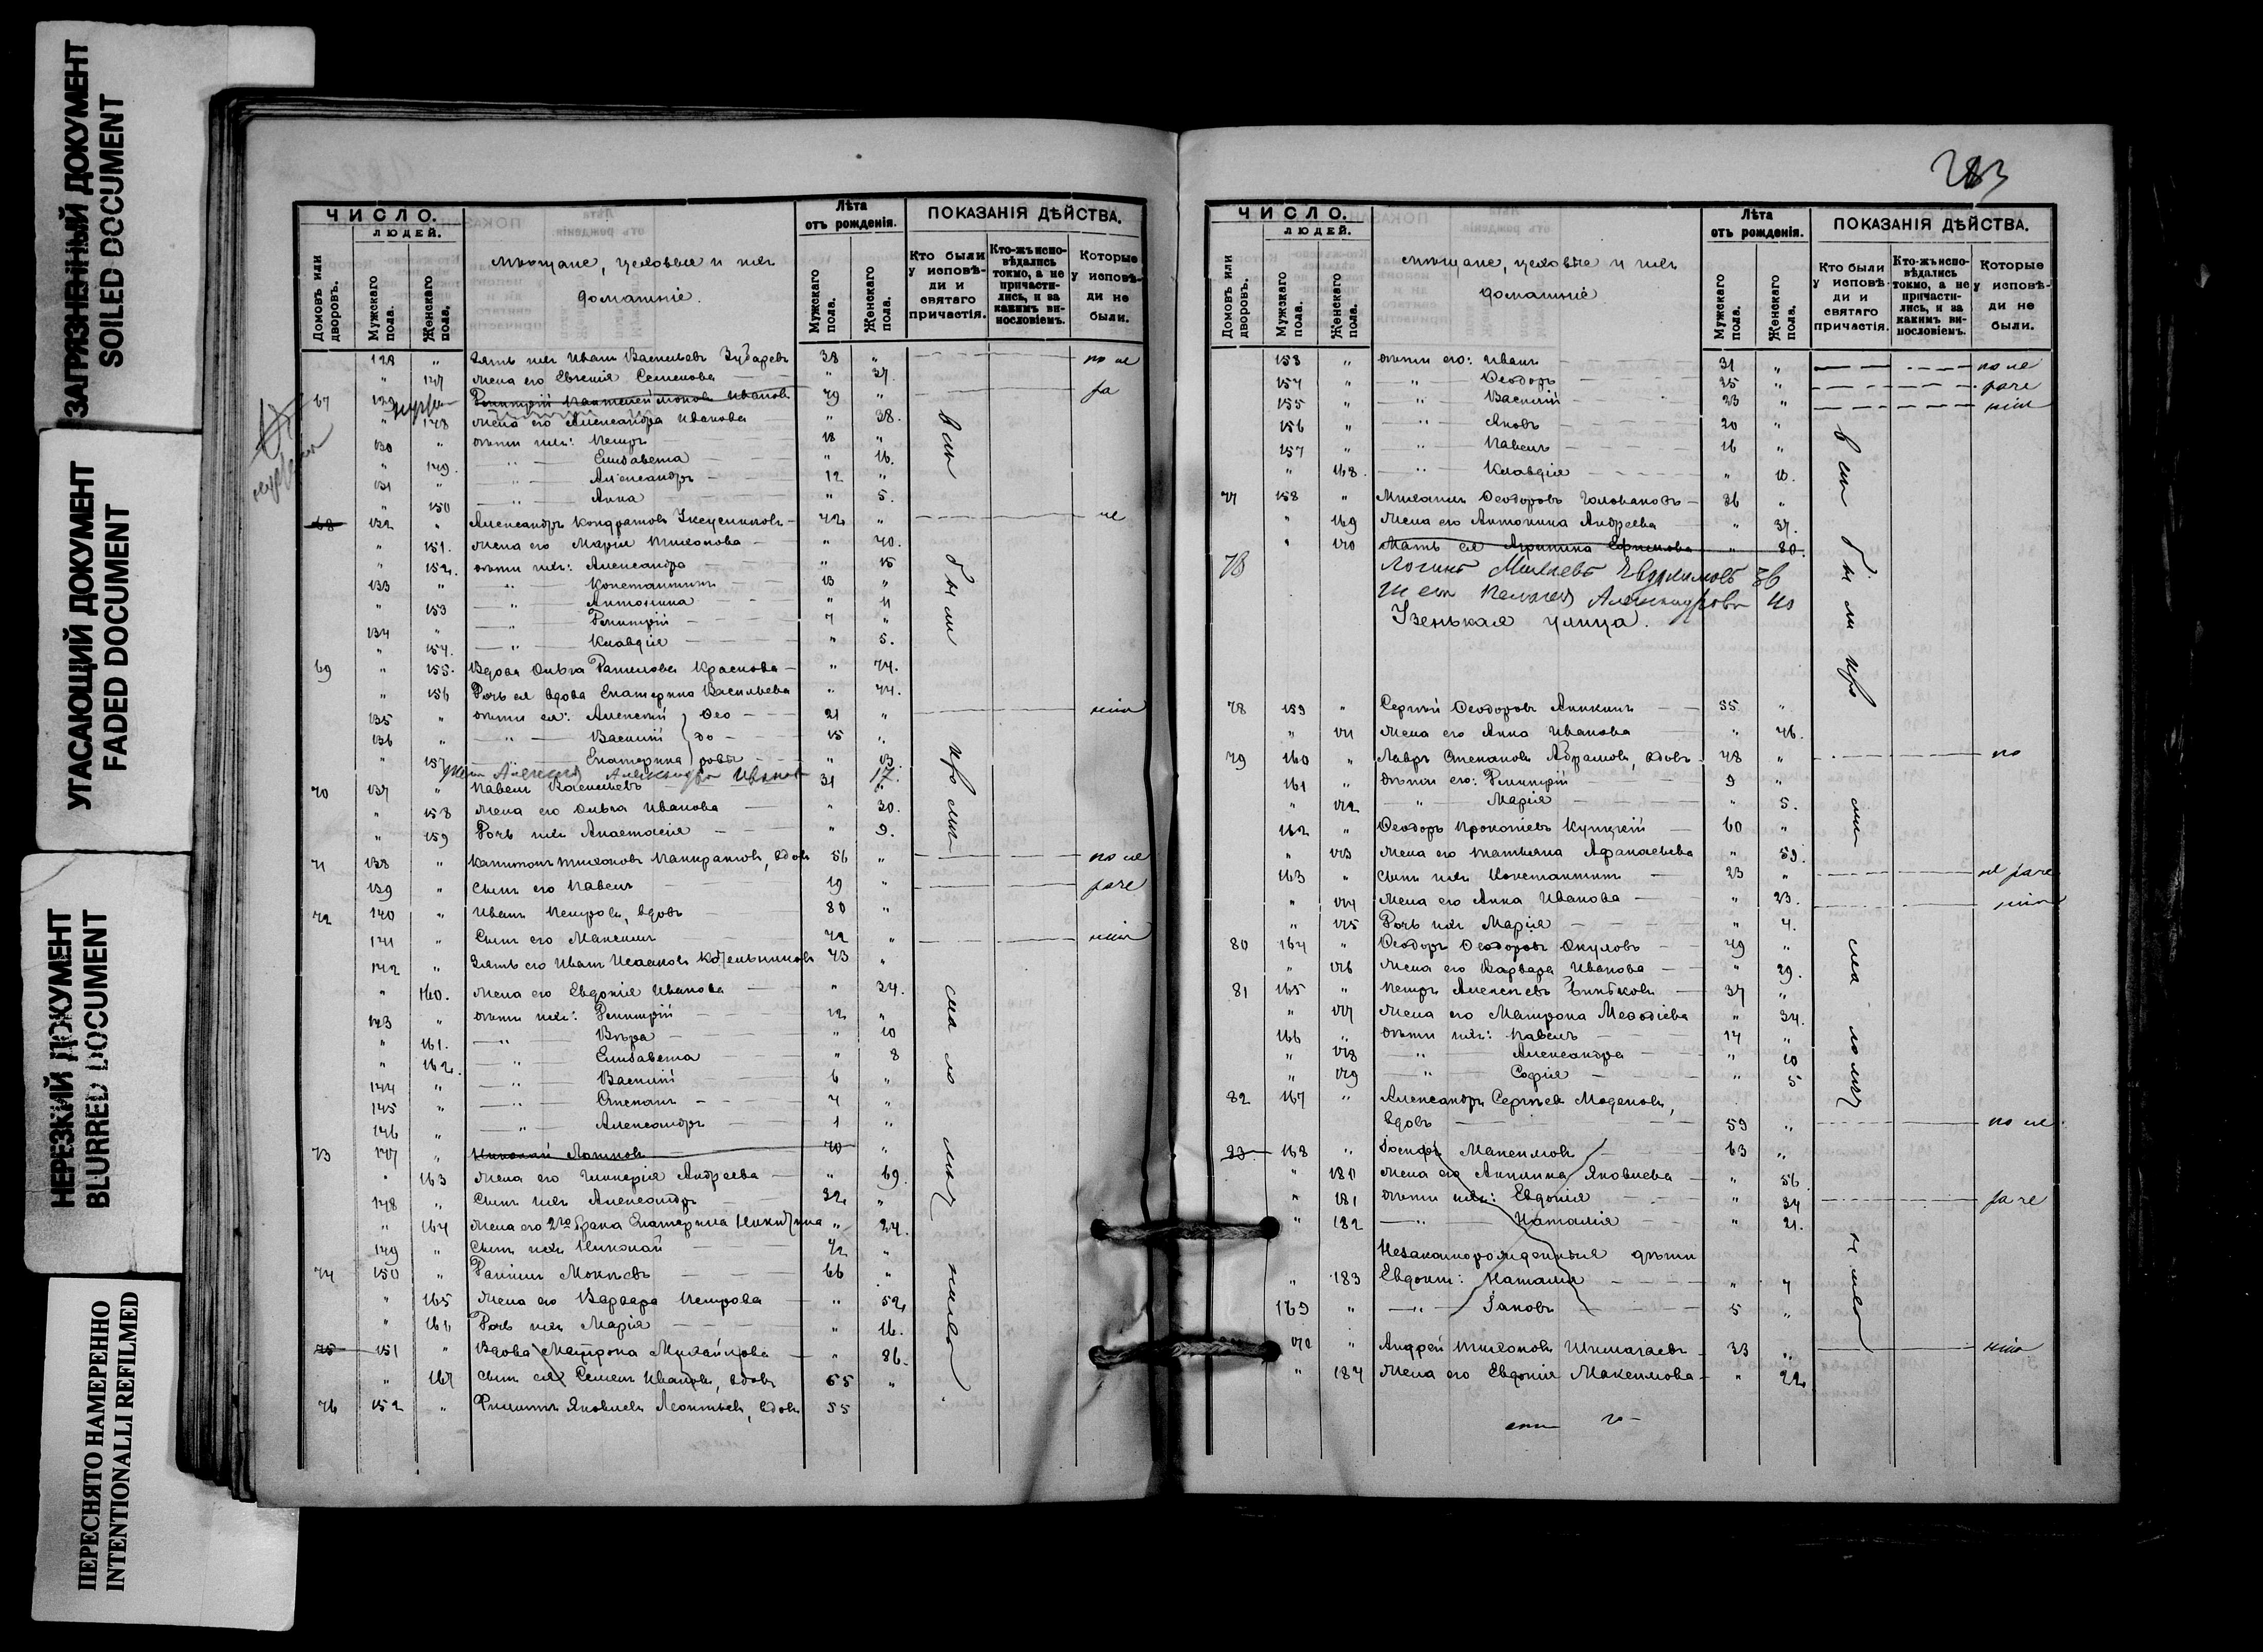 ЗАГРЯЗНЕННЫЙ ДОКУМЕНТ
SOILED DOCUMENT
УГАСАЮЩИЙ ДОКУМЕНТ
FADED DOCUMENT
НЕРЕЗКИЙ ДОКУМЕНТ
BLURRED DOCUMENT
ПЕРЕСНЯТО НАМЕРЕННО
INTENTIONALLI REFILMED
ЧИСЛО.
ЛЮДЕЙ.
Домовъ или дворовъ.
Мужскаго пола.
Женскаго пола.
мѣщане, цеховые и ихъ
домашніе.
Лѣта
отъ рожденія.
Мужскаго пола.
Женскаго пола.
ПОКАЗАНІЯ ДѢЙСТВА.
Кто были у исповѣди и святаго причастія.
Кто-жъ исповѣдались токмо, а не причастились, и за какимъ винословіемъ.
Которые у исповѣди не были.
128 " Зять ихъ Иванъ Васильевъ Зубаревъ 38 " по не
" 147 Жена его Евгенія Семенова " 37.
67 129 Димитрій Пантелеймоновъ Ивановъ 49 " ра
" 148 Жена его Александра Иванова " 38.
130 " дѣти ихъ: Петръ 18 "
" 149. " Елисавета " 16.
131 " " Александръ 12 "
" 150 " Анна " 5.
68 132 " Александръ Кондратовъ 42 " че
" 151. Жена его Марія Тихонова " 40.
" 152. дѣти ихъ: Александра " 15
133 " " Константинъ 13 "
" 153 " Антонина " 11
134 " " Димитрій 7 "
" 154. " Клавдія " 5.
69 " 155. Вдова Ольга Данилова Краснова " 74.
" 156 Дочь ея вдова Екатерина Васильева " 44.
135 " дѣти ея: Алексѣй Ѳео 21 " нію
136 " " Василій до 15 "
" 157 " Екатерина ровы " 13.
Жена Алексѣя Александра Иванов 17
70 137 " Павелъ Васильевъ 31 "
" 158 Жена его Ольга Иванова " 30.
" 159 Дочь ихъ Анастасія " 9.
71 138 " Капитонъ Тихоновъ Панкратовъ, вдовъ 56 " по не
139 " Сынъ его Павелъ 19 " раче
72 140 " Иванъ Петровъ, вдовъ 80 "
141 " Сынъ его Максимъ 42 " нію
142 " Зять его Иванъ Исааковъ Котельниковъ 43 "
" 160. Жена его Евдокія Иванова " 34.
143 " дѣти ихъ: Димитрій 12 "
" 161. " Вѣра " 10
" 162. " Елисавета " 8
144 " " Василій 6 "
145 " " Степанъ 4 "
146 " " Александръ 1 "
73 147 " Николай Логиновъ 70 "
" 163 Жена его Гликерія Андреева " 69.
148 " Сынъ ихъ Александръ 32 "
" 164 Жена его 2го брака Екатерина Никитина " 24.
149 " Сынъ ихъ Николай 1/2 "
74 150 " Даніилъ Мокѣевъ 66 "
" 165 Жена его Варвара Петрова " 52.
" 166 Дочь ихъ Марія " 16.
75 151 " Вдова Матрона Михайлова " 86.
" 167 Сынъ ея Семенъ Ивановъ, вдовъ 65 "
76 152 " Филиппъ Яковлевъ Леонтьевъ, вдовъ 55
всѣ были при исл
283
ЧИСЛО.
ЛЮДЕЙ.
Домовъ или дворовъ.
Мужскаго пола.
Женскаго пола.
мѣщане, цеховые и ихъ
домашніе
Лѣта
отъ рожденія.
Мужскаго пола.
Женскаго пола.
ПОКАЗАНІЯ ДѢЙСТВА.
Кто были у исповѣди и святаго причастія.
Кто-жъ исповѣдались токмо, а не причастились, и за какимъ винословіемъ.
Которые у исповѣди не были.
153 " дѣти его: Иванъ 31 " по не
154 " " Ѳеодоръ 25 " раче
155 " " Василій 23 " нію
156 " " Яковъ 20 "
157 " " Павелъ 16 "
" 168. " Клавдія " 10.
77 158 " Михаилъ Ѳеодоровъ Головановъ 36 "
" 169 Жена его Антонина Андреева " 37.
" 170 Мать ея Агрипина Ефимова " 80.
78 Логинъ Евдокимовъ 36
Жена Пелагея Александрова 40
Узенькая улица.
78 159 " Сергѣй Ѳеодоровъ Аникинъ 55 "
" 171 Жена его Анна Иванова " 46.
79 160 " Лавръ Степановъ Абрамовъ, вдовъ 48 " по
161 " дѣти его: Димитрій 9 "
" 172 " Марія " 5.
162 " Ѳеодоръ Прокопіевъ Купцкій 60 "
" 173 Жена его Татьяна Афанасьева " 59.
163 " Сынъ ихъ Константинъ 23 " не раче
" 174 Жена его Анна Иванова " 23. нію
" 175 Дочь ихъ Марія " 4.
80 164 " Ѳеодоръ Ѳеодоровъ Окуловъ 49 "
" 176 Жена его Варвара Иванова " 29.
81 165 " Петръ Алексѣевъ 37 "
" 177 Жена его Матрона Меѳодіева " 34.
166 " дѣти ихъ: Павелъ 14 "
" 178 " Александра " 10
" 179 " Софія " 5
82 167 " Александръ Сергѣевъ Моденовъ,
вдовъ 59 " по не
83 168 " Іосифъ Максимовъ 63 "
" 180 Жена его Акилина Яковлева " 56.
" 181 дѣти ихъ: Евдокія " 34 раче
" 182 " Наталія " 21.
Незаконнорожденныя дѣти
" 183 Евдокіи: Наталія " 7
169 " " Іаковъ 5 "
170 " Андрей Тихоновъ Шишагаевъ 33 " нію
" 184 Жена его Евдокія Максимова " 22.